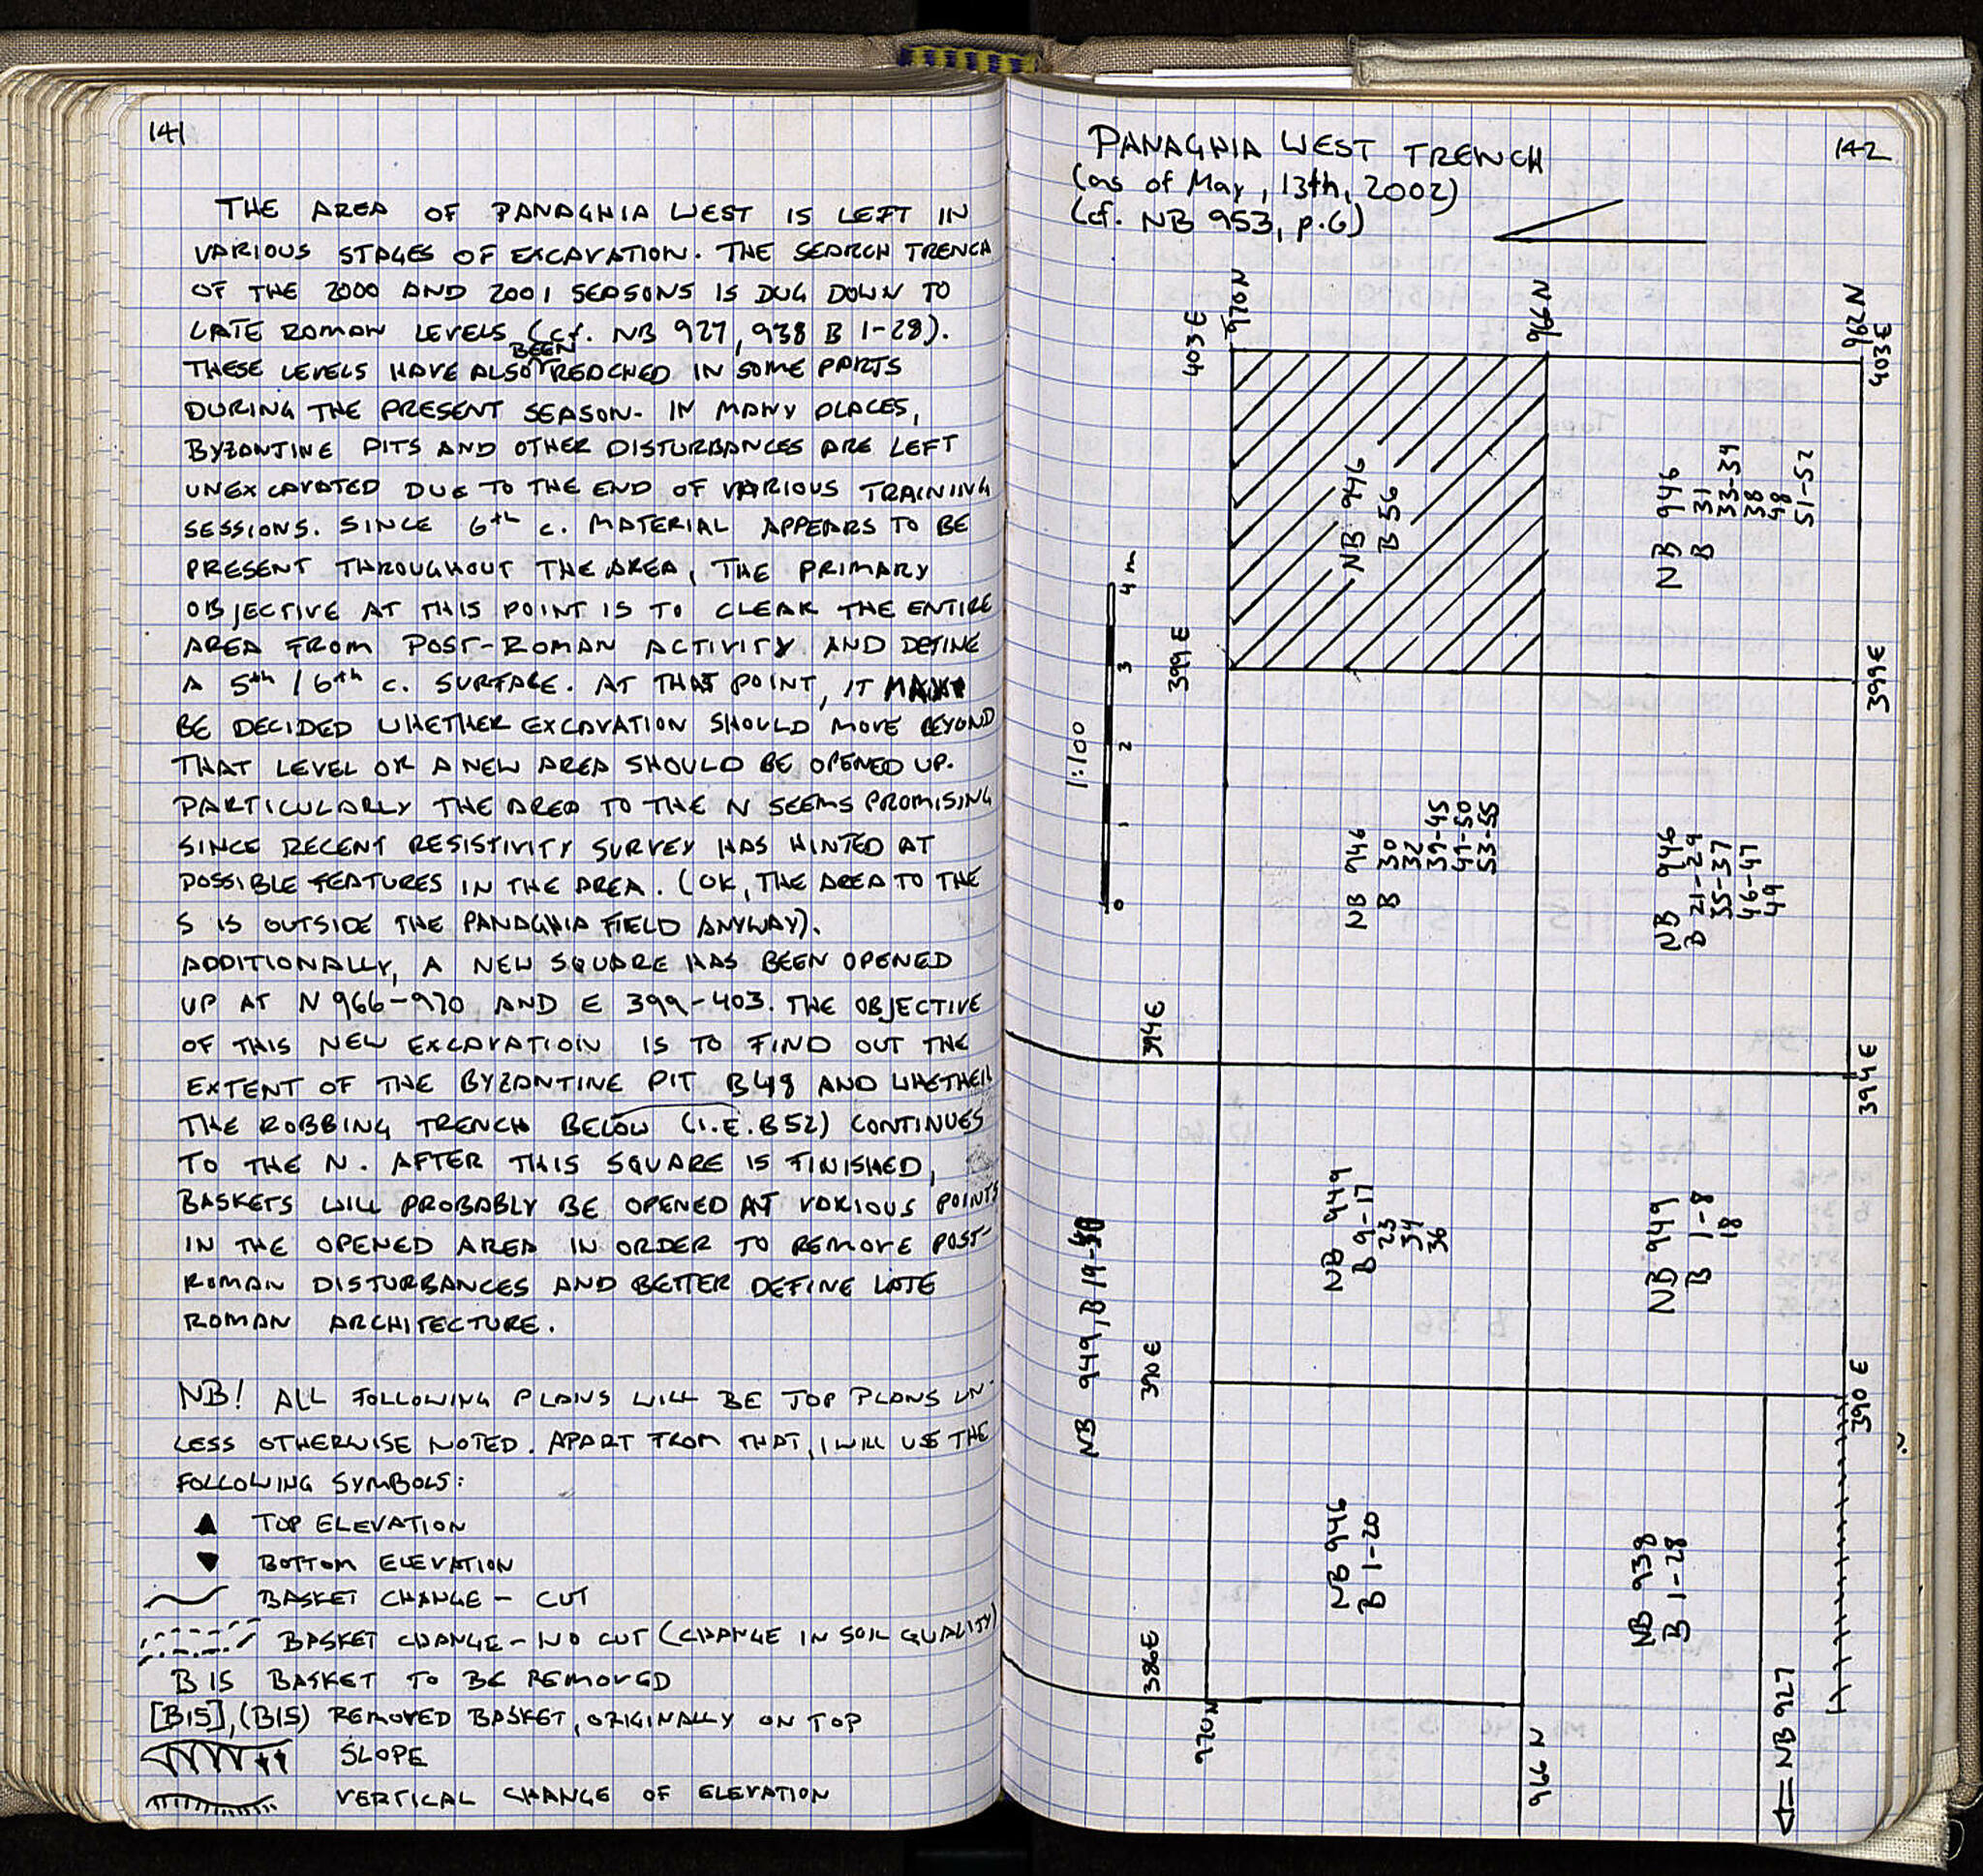 141
THE AREA OF PANAGHIA WEST IS LEFT IN
VARIOUS STAGES OF EXCAVATION. THE SEARCH TRENCH
OF THE 2000 AND 2001 SEASONS IS DUG DOWN TO
LATE ROMAN LEVELS (cf. NB 927, 938 B 1-28).
THESE LEVELS HAVE ALSO BEEN REACHED IN SOME PARTS
DURING THE PRESENT SEASON. IN MANY PLACES,
BYZANTINE PITS AND OTHER DISTURBANCES ARE LEFT
UNEXCAVATED DUE TO THE END OF VARIOUS TRAINING
SESSIONS. SINCE 6th c. MATERIAL APPEARS TO BE
PRESENT THROUGHOUT THE AREA, THE PRIMARY
OBJECTIVE AT THIS POINT IS TO CLEAR THE ENTIRE
AREA FROM POST-ROMAN ACTIVITY AND DEFINE
A 5th / 6th c. SURFACE. AT THAT POINT, IT MAY
BE DECIDED WHETHER EXCAVATION SHOULD MOVE BEYOND
THAT LEVEL OR A NEW AREA SHOULD BE OPENED UP.
PARTICULARLY THE AREA TO THE N SEEMS PROMISING
SINCE RECENT RESISTIVITY SURVEY HAS HINTED AT
POSSIBLE FEATURES IN THE AREA. (OK, THE AREA TO THE
S IS OUTSIDE THE PANAGHIA FIELD ANYWAY).
ADDITIONALLY, A NEW SQUARE HAS BEEN OPENED
UP AT N 966-970 AND E 399-403. THE OBJECTIVE
OF THIS NEW EXCAVATION IS TO FIND OUT THE
EXTENT OF THE BYZANTINE PIT B48 AND WHETHER
THE ROBBING TRENCH BELOW (I.E. B52) CONTINUES
TO THE N. AFTER THIS SQUARE IS FINISHED,
BASKETS WILL PROBABLY BE OPENED AT VARIOUS POINTS
IN THE OPENED AREA IN ORDER TO REMOVE POST-
ROMAN DISTURBANCES AND BETTER DEFINE LATE
ROMAN ARCHITECTURE.
NB! ALL FOLLOWING PLANS WILL BE TOP PLANS UN-
LESS OTHERWISE NOTED. APART FROM THAT, I WILL USE THE
FOLLOWING SYMBOLS:
▲ TOP ELEVATION
▼ BOTTOM ELEVATION
BASKET CHANGE - CUT
BASKET CHANGE - NO CUT (CHANGE IN SOIL QUALITY)
B15 BASKET TO BE REMOVED
[B15], (B15) REMOVED BASKET, ORIGINALLY ON TOP
SLOPE
VERTICAL CHANGE OF ELEVATION
142
PANAGHIA WEST TRENCH
(as of May, 13th, 2002)
(cf. NB 953, p.6)
403 E
970 N
966 N
962 N
403 E
NB 946
B 56
NB 946
B 31
33-34
38
48
51-52
399 E
399 E
1:100
0 1 2 3 4 m
NB 946
B 30
32
39-45
49-50
53-55
NB 946
B 21-29
35-37
46-47
49
394 E
394 E
NB 949
B 9-17
23
34
36
NB 949
B 1-8
18
NB 949, B 19-
390 E
390 E
NB 946
B 1-20
NB 938
B 1-28
386 E
970 N
966 N
NB 927